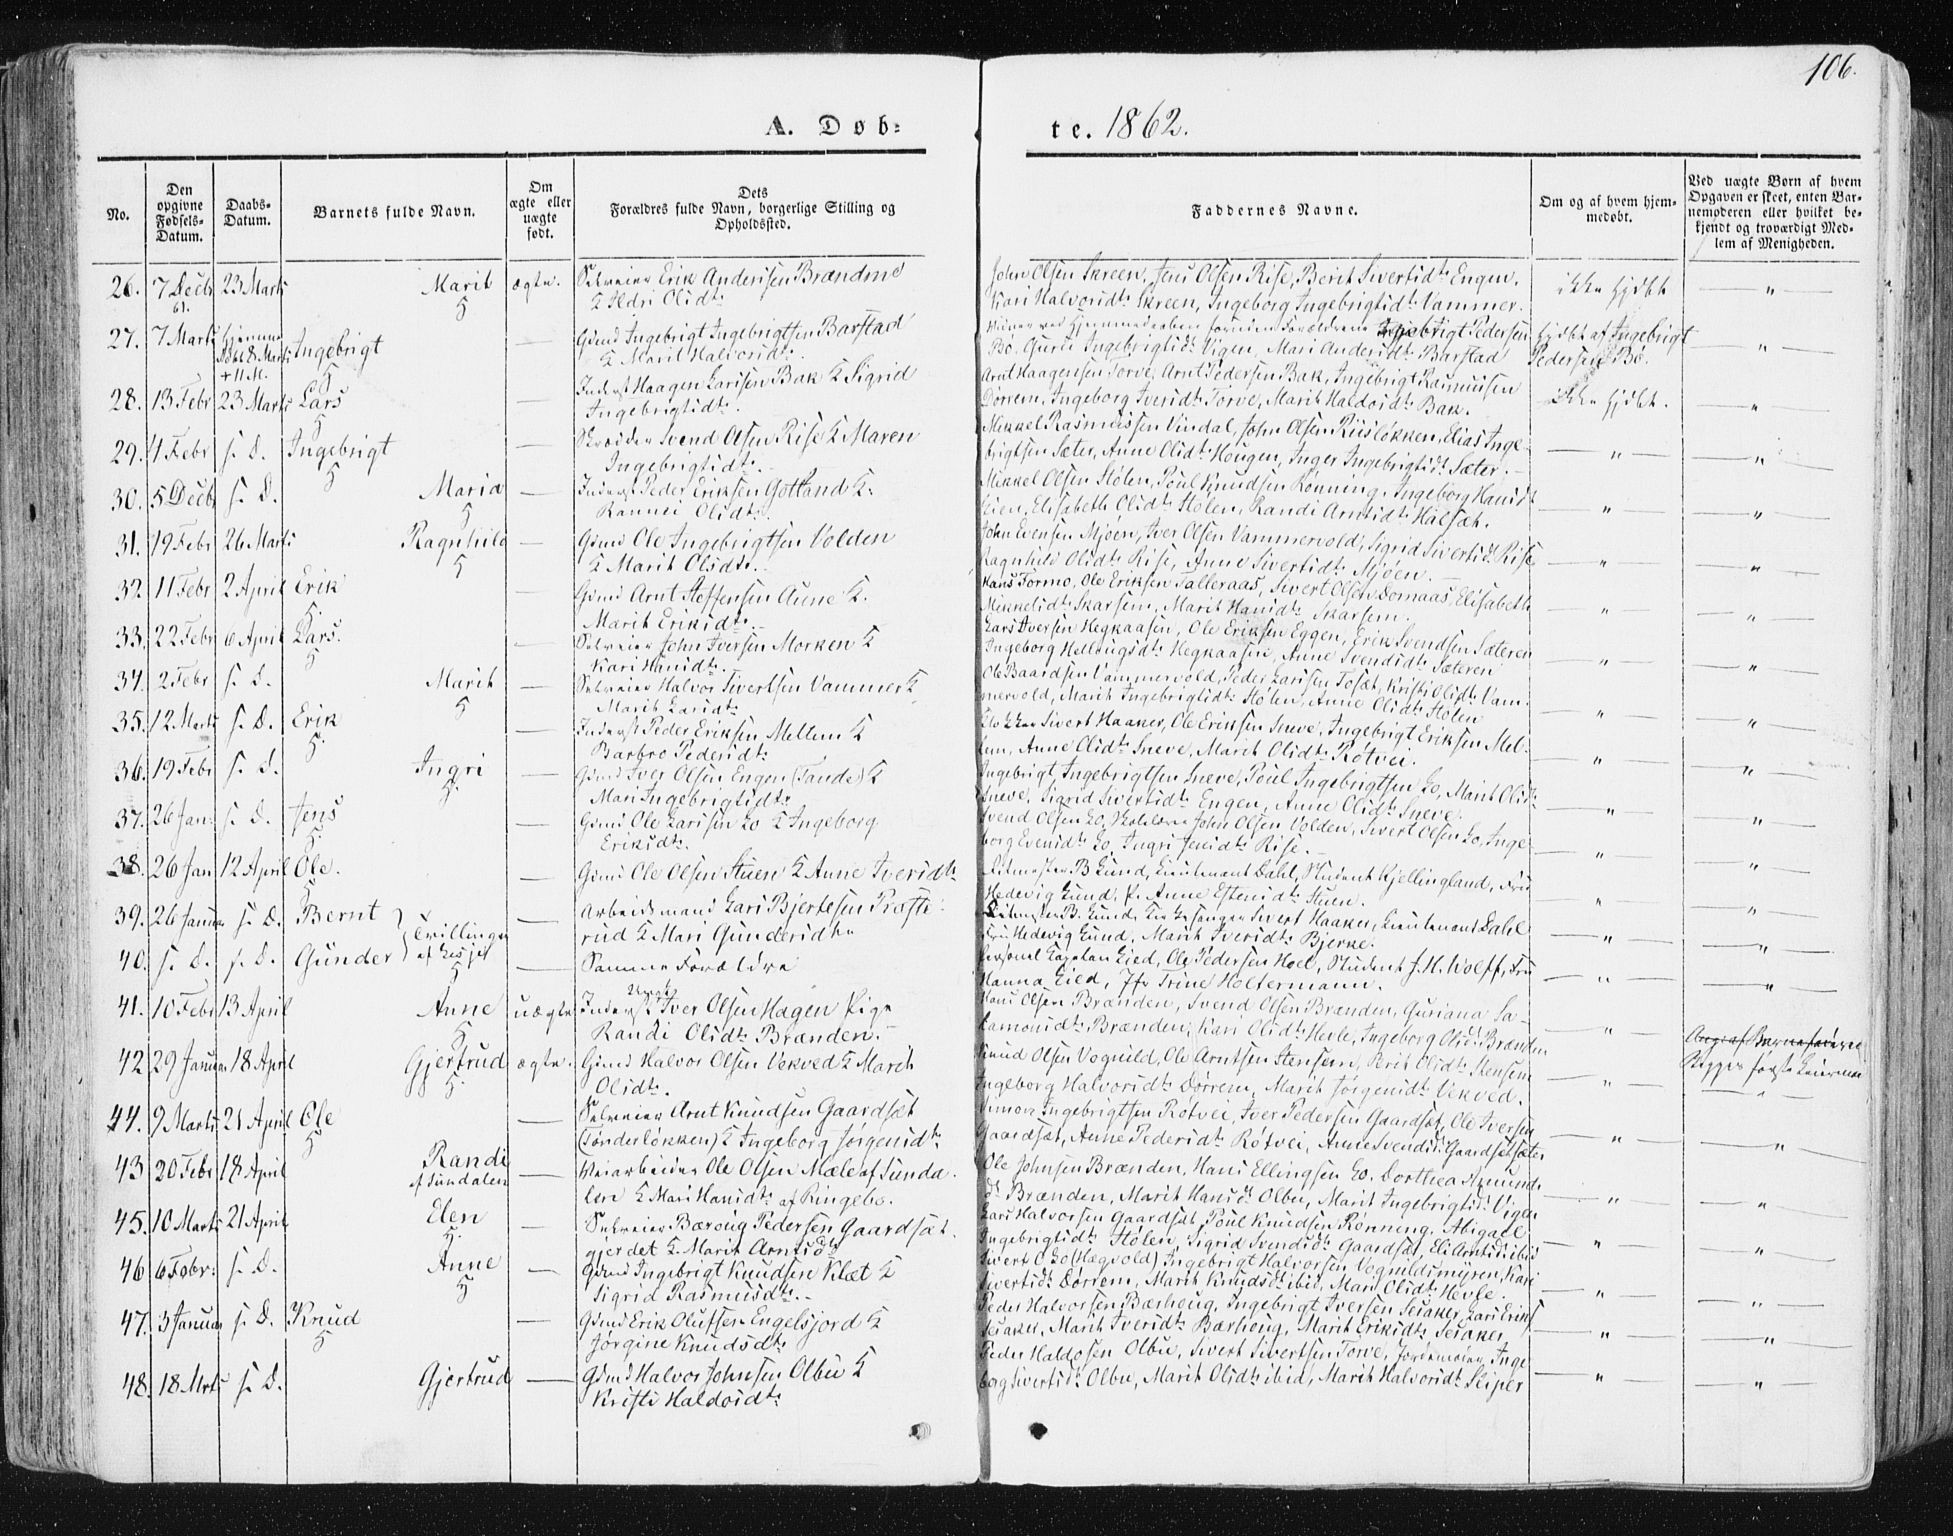 106.
A. Døb-
te. 1862.
No.
Den opgivne Fødsels-Datum.
Daabs-Datum.
Barnets fulde Navn.
Om ægte eller uægte født.
Dets Forældres fulde Navn, borgerlige Stilling og Opholdssted.
Faddernes Navne.
Om og af hvem hjemmedøbt.
Ved uægte Børn af hvem Opgaven er skeet, enten Barnemoderen eller hvilket bekjendt og troværdigt Medlem af Menigheden.
26. 7 Decbr 61. 23 Marts Marit ægte. Selveier Erik Andersen Brændmo
& Ildri Olsdtr
John Olsen Skreen, Jens Olsen Rise, Berit Sivertsdtr Engen,
Kari Halvorsdtr Skreen, Ingeborg Ingebrigtsdtr Vammer.
ikke hjdbt — " —
27. 7 Marts hjemmedøbt 8 Marts + 11 M. Ingebrigt — Gmd Ingebrigt Ingebrigtsen Barstad
& Marit Halvorsdtr.
Ingebrigt Pedersen
Bø. Guru Ingebrigtsdtr Vigen, Mari Andersdtr Barstad
hjdbt af Ingebrigt
Pedersen Bø. — " —
28. 13 Febr 23 Marts Lars — Inderst Haagen Larssen Bak & Sigrid
Ingebrigtsdtr.
Arnt Haagensen Torve, Arnt Pedersen Bak, Ingebrigt Rasmussen
Dørrem, Ingeborg Iversdtr Torve, Marit Haldosdtr Bak.
ikke hjdbt. — " —
29. 4 Febr s. D. Ingebrigt — Skræder Svend Olsen Rise & Maren
Ingebrigtsdtr.
Mikkel Rasmussen Vindal, John Olsen Riisløkken, Elias Inge-
brigtsen Sæter, Anne Olsdtr Hougen, Inger Ingebrigtsdtr Sæter.
— " — — " —
30. 5 Decbr s. D. Maria — Inderst Peder Eriksen Gotland &
Rannei Olsdtr.
Mikkel Olsen Hølen, Poul Knudsen Rønning, Ingeborg Hansdtr
Lien, Elisabeth Olsdtr Stølen, Randi Arntsdtr Halsæt.
— " — — " —
31. 19 Febr 26 Marts Ragnhild — Gmd Ole Ingebrigtsen Volden
& Marit Olsdtr.
John Evensen Mjøen, Iver Olsen Vammervold, Sigrid Sivertsdtr Rise,
Ragnhild Olsdtr Rise, Anne Sivertsdtr Mjøen.
— " — — " —
32. 11 Febr 2 April Erik — Gmd Arnt Steffensen Aune &
Marit Eriksdtr.
Hans Tormo, Ole Eriksen Talleraas, Sivert Olsen Domaas, Elisabeth
Mikkelsdtr Skarsem, Marit Hansdtr Skarsem.
— " — — " —
33. 22 Febr 6 April Lars. — Selveier John Iversen Morken &
Kari Hansdtr.
Lars Iversen Hegkaasen, Ole Eriksen Eggen, Erik Svendsen Sæteren
Ingeborg Hellaugsdtr Hegkaasen, Anne Svendsdtr Sæteren
— " — — " —
34. 2 Febr s. D. Marit — Selveier Halvor Sivertsen Vammer &
Marit Larsdtr
Ole Baardsen Vammervold, Peder Larssen Tosæt, Kristi Olsdtr Vam-
mervold, Marit Ingebrigtsdtr Stølen, Anne Olsdtr Stølen
— " — — " —
35. 12 Marts s. D. Erik — Inderst Peder Eriksen Mellem &
Barbro Pedersdtr
Klokker Sivert Haaker, Ole Eriksen Sneve, Ingebrigt Eriksen Mel-
lem, Anne Olsdtr Sneve, Marit Olsdtr Røtvei.
— " — — " —
36. 19 Febr s. D. Ingri — Gmd Iver Olsen Engen (Tande) &
Mari Ingebrigtsdtr
Ingebrigt Ingebrigtsen Sneve, Poul Ingebrigtsen Lo, Marit Olsdtr
Sneve, Sigrid Sivertsdtr Engen, Anne Olsdtr Sneve.
— " — — " —
37. 26 Jan. s. D. Jens — Gmd Ole Larssen Lo & Ingeborg
Eriksdtr.
Svend Olsen Lo, Skolelærer John Olsen Volden, Sivert Olsen Lo, Inge-
borg Evensdtr Lo, Ingri Jensdtr Rise.
— " — — " —
38. 26 Jan 12 April Ole. — Gmd Ole Olsen Stuen & Anne Iversdtr
Ritmester B. Lund, Lieutenant Dahl, Student Kjellingland, Fru
Hedevig Lund, P. Anne Estensdtr Stuen.
— " — — " —
39. 26 Januar s. D. Bernt Tvillinger — Arbeidsmand Lars Bjertesen Præste-
rud & Mari Gundersdtr
Ritmester B. Lund, Kirkesanger Sivert Haaker, Lieutenant Dahl
Fru Hedevig Lund, Marit Iversdtr Bjerke.
— " — — " —
40. s. D. s. D. Gunder — Samme Forældre
Personel Capelan Eied, Ole Pedersen Hoel, Student J. H. Wolff, Fru
Hanna Eied, Jfr Trine Holtermann.
— " — — " —
41. 10 Febr 13 April Anne uægte Inderst Iver Olsen Hagen Pige
Randi Olsdtr Brænden.
Hans Olsen Brænden, Svend Olsen Brænden, Guriana Sa-
lamonsdtr Brænden, Kari Olsdtr Hevle, Ingeborg Olsdtr Brænden
— " — Ang. af Barnefaderen
Begges første Leiermaal
42 29 Januar 18 April Gjertrud ægte. Gmd Halvor Olsen Vekved & Marit
Olsdtr.
Knud Olsen Vognild, Ole Arntsen Stensem, Berit Olsdtr Stensem
Ingeborg Halvorsdtr Dørrem, Marit Jørgensdtr Vekved.
— " — — " —
44. 9 Marts 21 April Ole — Selveier Arnt Knudsen Gaardsæt
(Sønderløkken) & Ingeborg Jørgensdtr
Simon Ingebrigtsen Røtvei, Iver Pedersen Gaardsæt, Ole Iversen
Gaardsæt, Anne Pedersdtr Røtvei, Anne Svendsdtr Gaardsætsæter
— " — — " —
43 20 Febr 18 April Randi af Sundalen — Veiarbeider Ole Olsen Mæle af Sunda-
len & Mari Hansdtr af Ringebo.
Ole Johnsen Brænden, Hans Ellingsen Lo, Dorthea Asmunds-
dtr Brænden, Marit Hansdtr Olbu, Marit Ingebrigtsdtr Vigen
— " — — " —
45. 10 Marts 21 April Elen — Selveier Bæroug Pedersen Gaardsæt-
gjerdet & Marit Arntsdtr
Lars Halvorsen Gaardsæt, Poul Knudsen Rønning, Abigael
Ingebrigtsdtr Stølen, Sigrid Svendsdtr Gaardsæt, Eli Arntsdtr ibid
— " — — " —
46 6 Febr. s. D. Anne — Gmd Ingebrigt Knudsen Klæt &
Sigrid Rasmusdtr.
Sivert O. Lo (Hægvold) Ingebrigt Halvorsen Vognildsmyren, Kari
Sivertsdtr Dørrem, Marit Knudsdtr ibid, Mari Olsdtr Hevle.
— " — — " —
47. 3 Januar s. D. Knud — Gmd Erik Olufsen Engelsjord &
Jørgine Knudsdtr
Peder Halvorsen Bærhoug, Ingebrigt Iversen Sesaker, Lars Eriks.
Sesaker, Marit Iversdtr Bærhoug, Marit Eriksdtr Sesaker
— " — — " —
48. 18 Mrts s. D. Gjertrud — Gmd Halvor Johnsen Olbu &
Kristi Haldosdtr
Peder Haldosen Olbu, Sivert Sivertsen Torve, Jordemoder Inge-
borg Sivertsdtr Olbu, Marit Olsdtr ibid, Marit Halvorsdtr Sliper
— " — — " —